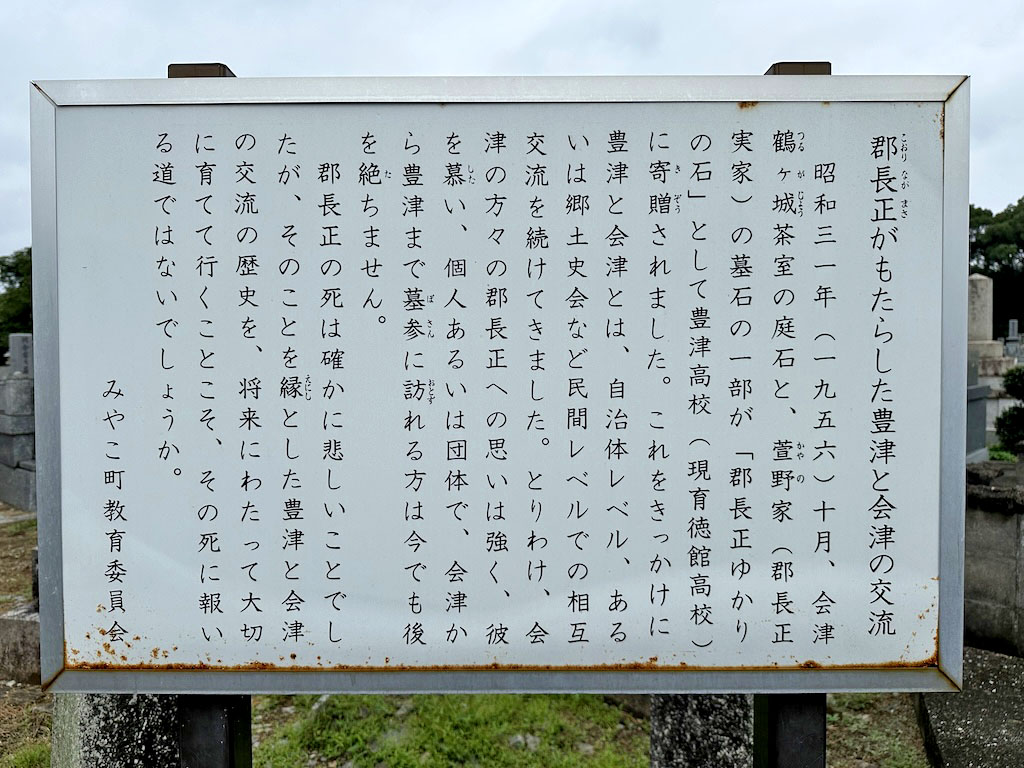 郡長正がもたらした豊津と会津の交流
昭和三一年（一九五六）十月、会津
鶴ヶ城茶室の庭石と、萱野家（郡長正
実家）の墓石の一部が「郡長正ゆかり
の石」として豊津高校（現育徳館高校）
に寄贈されました。これをきっかけに
豊津と会津とは、自治体レベル、ある
いは郷土史会など民間レベルでの相互
交流を続けてきました。とりわけ、会
津の方々の郡長正への思いは強く、彼
を慕い、個人あるいは団体で、会津か
ら豊津まで墓参に訪れる方は今でも後
を絶ちません。
郡長正の死は確かに悲しいことでし
たが、そのことを縁とした豊津と会津
の交流の歴史を、将来にわたって大切
に育てて行くことこそ、その死に報い
る道ではないでしょうか。
みやこ町教育委員会